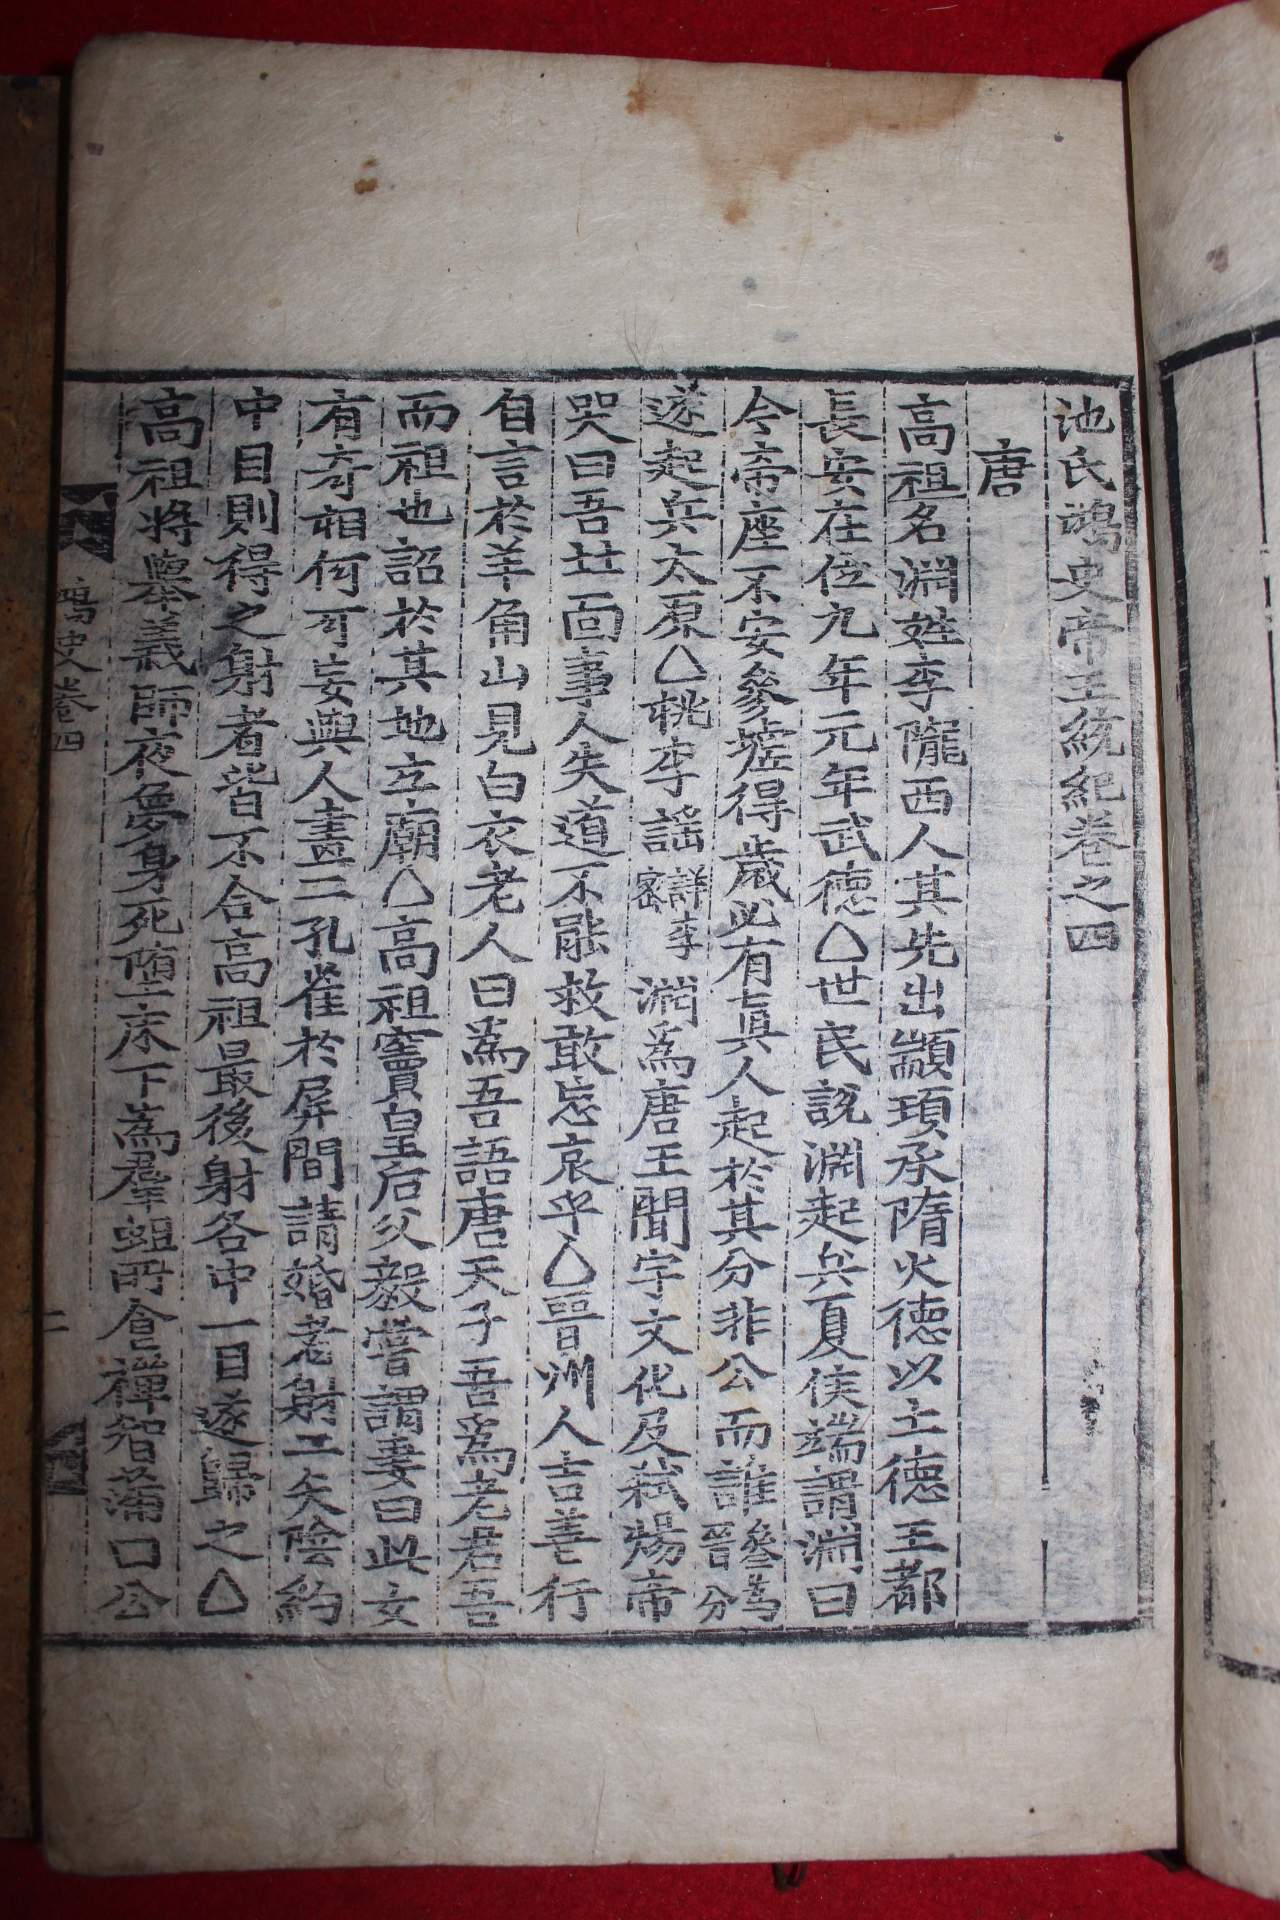 池氏鴻史帝王統紀卷之四
唐
高祖名淵姓李隴西人其先出顓頊承隋火德以土德王都
長安在位九年元年武德△世民說淵起兵夏侯端謂淵曰
今帝座不安參墟得歲必有眞人起於其分非公而誰參爲晉分
遂起兵太原△桃李謠詳李密淵爲唐王聞宇文化及弑煬帝
哭曰吾北面事人失道不能救敢忘哀乎△晉州人吉善行
自言於羊角山見白衣老人曰爲吾語唐天子吾爲老君吾
而祖也詔於其地立廟△高祖竇皇后父毅嘗謂妻曰此女
有奇相何可妄與人畫二孔雀於屛間請婚者射二矢陰約
中目則得之射者皆不合高祖最後射各中一目遂歸之△
高祖將擧義師夜夢身死墮床下爲羣蛆所食禪智滿曰公
鴻史卷四